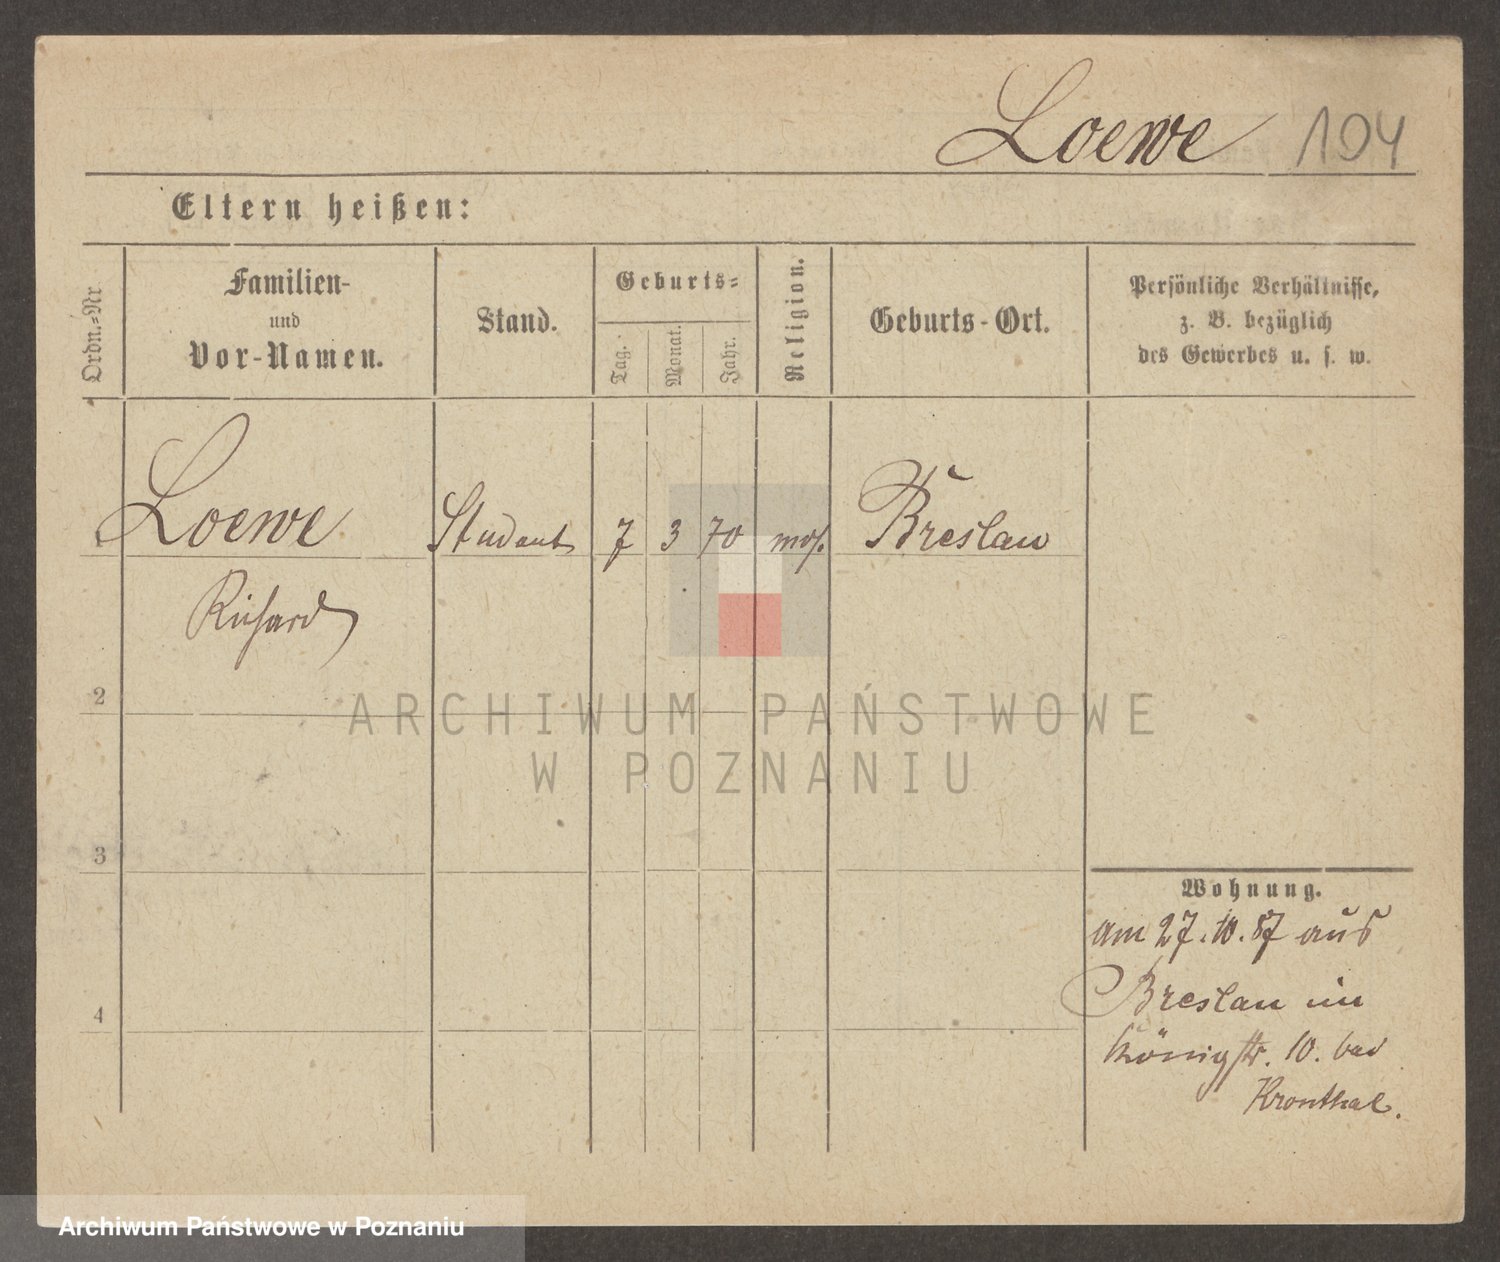 Loewe 104
Eltern heißen:
Ordn.-Nr.
Familien-
und
Vor-Namen.
Stand.
Geburts-
Tag.
Monat.
Jahr.
Religion.
Geburts-Ort.
Persönliche Verhältnisse,
z. B. bezüglich
des Gewerbes u. s. w.
1 Loewe Student 7 3 70 mos. Breslau
Richard
2
3
4
Wohnung.
am 27.10.87 aus
Breslau in
Königstr. 10. bei
Kronthal.
ARCHIWUM PAŃSTWOWE
W POZNANIU
Archiwum Państwowe w Poznaniu